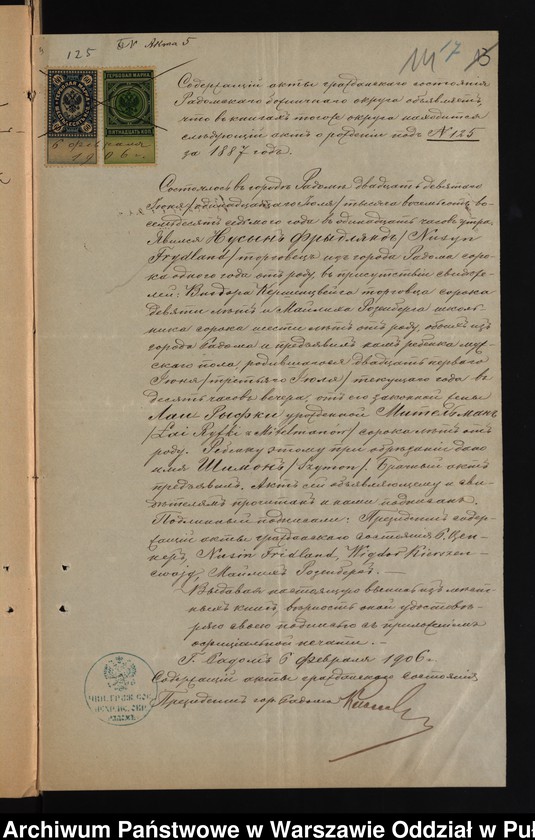 125 № Акта 5
117
ГЕРБОВАЯ МАРКА ГЕРБОВАЯ МАРКА
ПЯТНАДЦАТЬ КОП.
6 февраля
1906 г.
Содержащій акты гражданскаго состоянія
Радомскаго округа объявляетъ,
что въ книгахъ того округа находится
слѣдующій актъ о рожденіи подъ № 125
за 1887 годъ.
Состоялось въ городѣ Радомѣ двадцать девятаго
Іюня /одиннадцатаго Іюля/ тысяча восемьсотъ во-
семьдесятъ седьмого года въ одиннадцать часовъ утра.
Явился Нусынъ Фрыдляндъ /Nusyn
Frydland/ торговецъ изъ города Радома соро-
ка одного года отъ роду, въ присутствіи свидѣте-
лей: Вигдора Кершенцвейга торговца сорока
девяти лѣтъ и Майлиха Розенберга школь-
ника сорока шести лѣтъ отъ роду, обоихъ изъ
города Радома и предъявилъ намъ ребенка муж-
скаго пола, родившагося двадцать перваго
Іюня /третьяго Іюля/ текущаго года въ
десять часовъ вечера, отъ его законной жены
Лаи-Рыфки урожденной Мительманъ
/Lai Ryfki z Mitelmanów/ сорока лѣтъ отъ
роду. Ребенку этому при обрѣзаніи дано
имя Шимонъ /Szymon/. Брачный актъ
предъявилъ. Актъ сей объявляющему и сви-
дѣтелямъ прочитанъ и нами подписанъ.
Подлинный подписали: Президентъ содер-
жащій акты гражданскаго состоянія
Nusin Fridland, Wigdor Kierszen-
cwajg, Майлихъ Розенбергъ. —
Выдавая настоящую выпись изъ
книгъ, вѣрность оной удостовѣ-
ряю своею подписью съ приложеніемъ
официальной печати. —
Г. Радомъ 6 февраля 1906 г.
Содержащій акты гражданскаго состоянія
Президентъ гор. Радома
Archiwum Państwowe w Warszawie Oddział w Pu